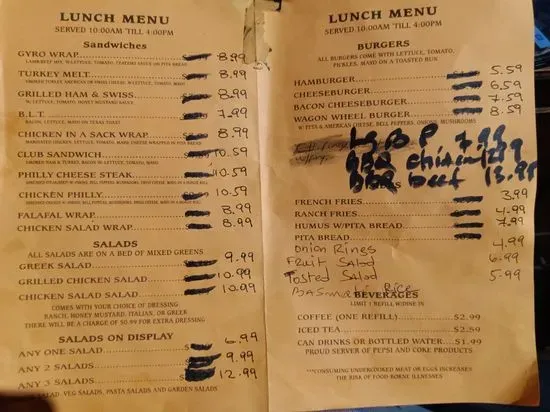 LUNCH MENU
SERVED 10:00AM 'TILL 4:00PM
Sandwiches
GYRO WRAP 8.99
LAMB/BEEF MIX, W/LETTUCE, TOMATO, ONIONS, TZATZIKI SAUCE ON PITA BREAD
TURKEY MELT 8.99
SMOKED TURKEY, AMERICAN OR SWISS CHEESE, W/LETTUCE, TOMATO, MAYO
GRILLED HAM & SWISS 8.99
W/ LETTUCE, TOMATO, HONEY MUSTARD SAUCE
B.L.T. 7.99
BACON, LETTUCE, MAYO ON TEXAS TOAST
CHICKEN IN A SACK WRAP 8.99
MARINATED CHICKEN, LETTUCE, TOMATO, MAYO, CHEESE WRAPPED IN PITA BREAD
CLUB SANDWICH 10.59
SMOKED HAM & TURKEY W/ BACON, LETTUCE, TOMATO, MAYO
PHILLY CHEESE STEAK 10.59
CHICKEN PHILLY 10.59
FALAFAL WRAP 8.99
CHICKEN SALAD WRAP 8.99
SALADS
ALL SALADS ARE ON A BED OF MIXED GREENS
GREEK SALAD 9.99
GRILLED CHICKEN SALAD 10.99
CHICKEN SALAD SALAD 10.99
COMES WITH YOUR CHOICE OF DRESSING
RANCH, HONEY MUSTARD, ITALIAN, OR GREEK
THERE WILL BE A CHARGE OF $0.99 FOR EXTRA DRESSING
SALADS ON DISPLAY
ANY ONE SALAD 6.99
ANY 2 SALADS 9.99
ANY 3 SALADS 12.99
SALAD, VEG SALADS, PASTA SALADS AND GARDEN SALADS
LUNCH MENU
SERVED 10:00AM 'TILL 4:00PM
BURGERS
ALL BURGERS COME WITH LETTUCE, TOMATO,
PICKLES, MAYO ON A TOASTED BUN
HAMBURGER 5.59
CHEESEBURGER 6.59
BACON CHEESEBURGER 7.59
WAGON WHEEL BURGER 8.59
W/PITA & AMERICAN CHEESE, BELL PEPPERS, ONIONS, MUSHROOMS
Lg B P 7.99
BBQ chicken
BBQ beef 13.99
FRENCH FRIES 3.99
RANCH FRIES 4.99
HUMUS W/PITA BREAD 7.99
PITA BREAD
Onion Rings 4.99
Fruit Salad 6.99
Tosted Salad 5.99
BASmati Rice
BEVERAGES
LIMIT 1 REFILL W/DINE IN
COFFEE (ONE REFILL) $2.99
ICED TEA $2.59
CAN DRINKS OR BOTTLED WATER $1.99
PROUD SERVER OF PEPSI AND COKE PRODUCTS
**CONSUMING UNDERCOOKED MEAT OR EGGS INCREASES
THE RISK OF FOOD BORNE ILLNESSES